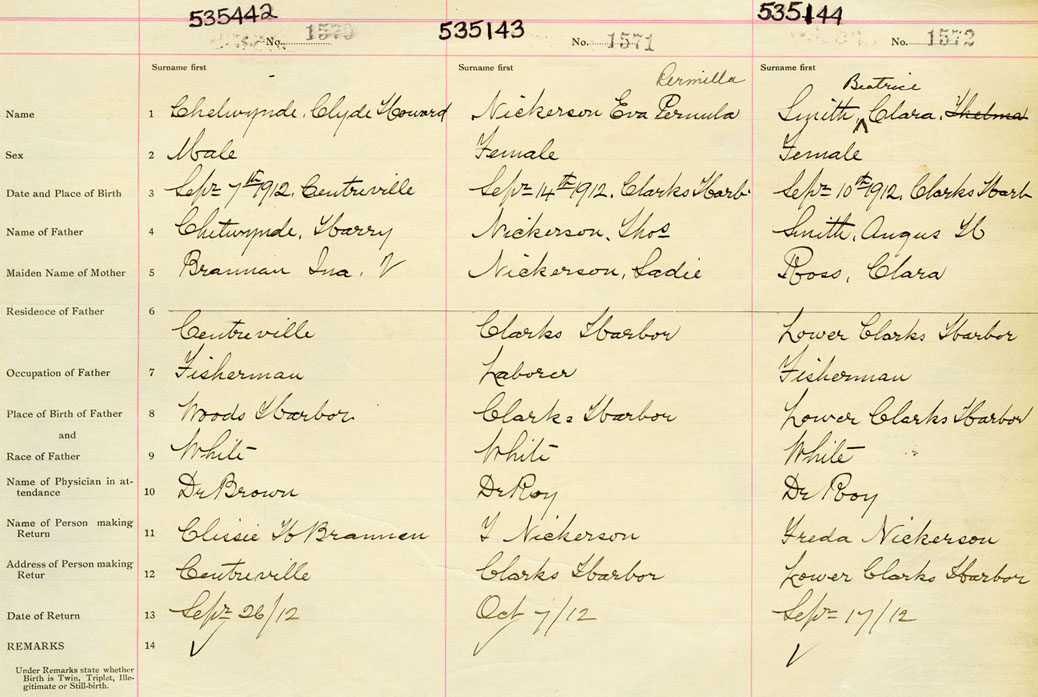 535442 535143 535144
No. 1570 No. 1571 No. 1572
Surname first Surname first Surname first
Permilla Beatrice
Name 1 Chetwynde, Clyde Howard Nickerson Eva Pernula Smith, Clara, Thelma
Sex 2 Male Female Female
Date and Place of Birth 3 Sept 7th 1912. Centreville Sept 14th 1912. Clarks Harb Sept 10th 1912. Clarks Harb
Name of Father 4 Chetwynde, Harry Nickerson, Thos Smith, Angus H
Maiden Name of Mother 5 Brannan Ina. V Nickerson, Sadie Ross, Clara
Residence of Father 6
Centreville Clarks Harbor Lower Clarks Harbor
Occupation of Father 7 Fisherman Laborer Fisherman
Place of Birth of Father 8 Woods Harbor Clarks Harbor Lower Clarks Harbor
and
Race of Father 9 White White White
Name of Physician in at-
tendance 10 Dr Brown Dr Roy Dr Roy
Name of Person making
Return 11 Clissie H Brannen T Nickerson Freda Nickerson
Address of Person making
Retur 12 Centreville Clarks Harbor Lower Clarks Harbor
Date of Return 13 Sept 26/12 Oct 7/12 Sept 17/12
REMARKS 14
Under Remarks state whether
Birth is Twin, Triplet, Ille-
gitimate or Still-birth.